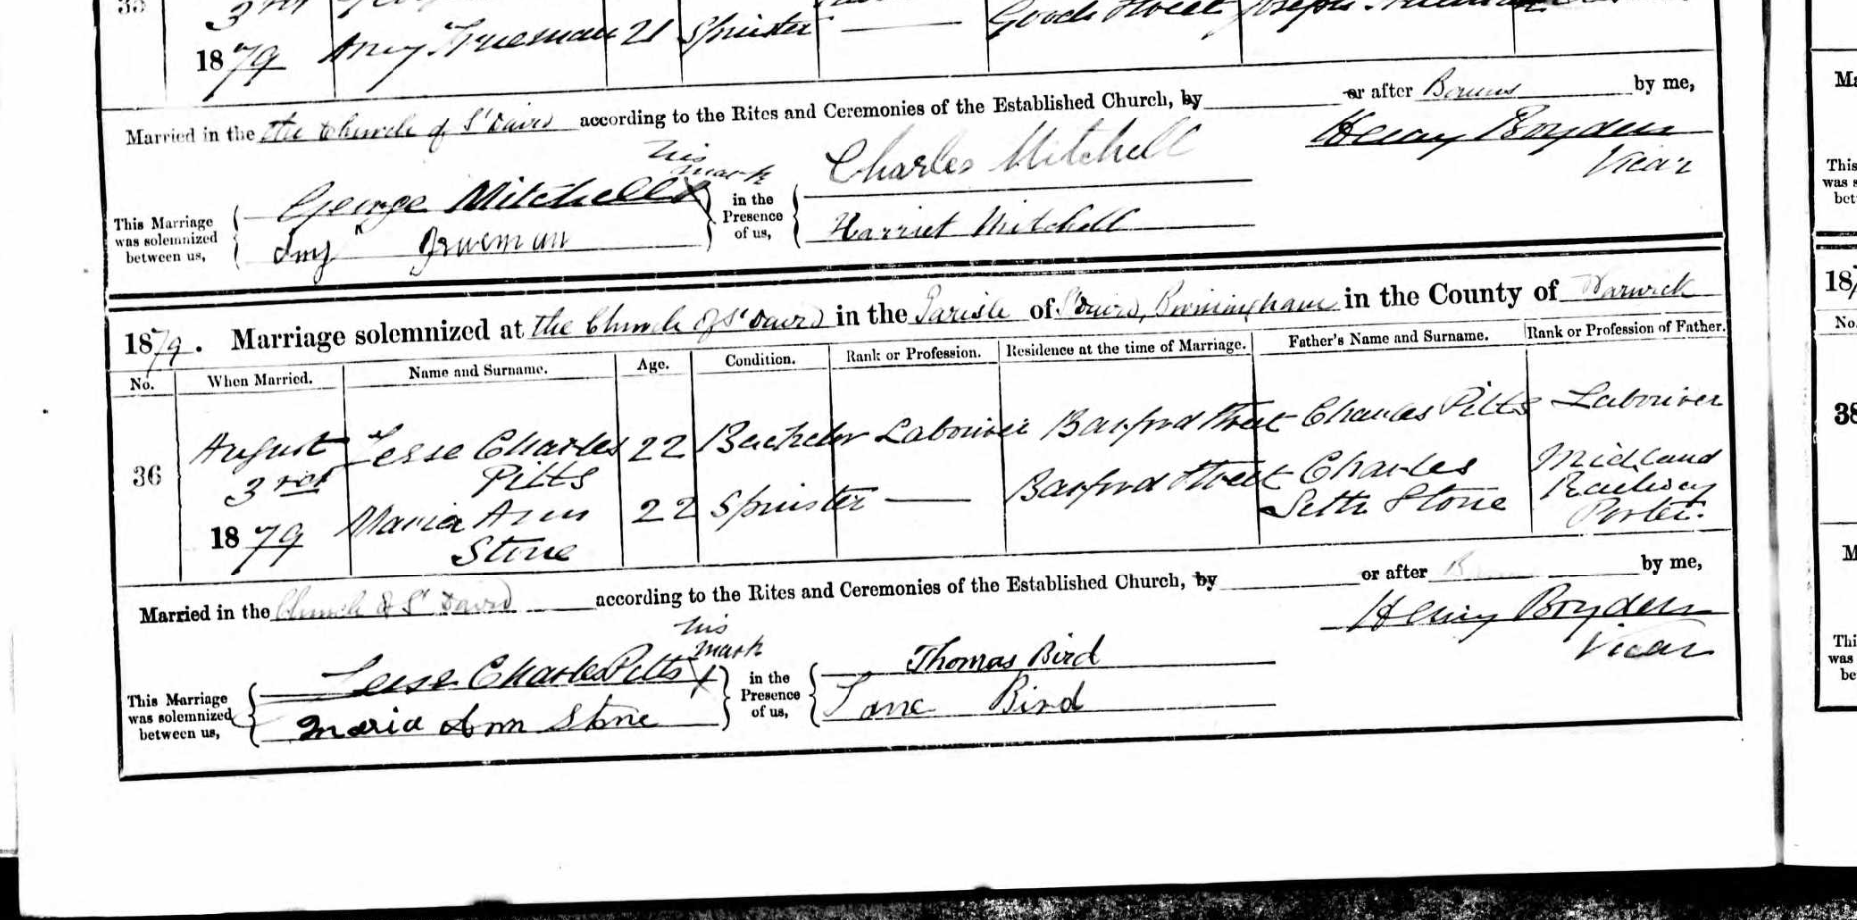 35
3rd
1879 Amy Trueman 21 Spinster — Gooch Street Joseph Trueman
Married in the the Church of St David according to the Rites and Ceremonies of the Established Church, by or after Banns by me,
Henry Boyden
Vicar
This Marriage was solemnized between us, George Mitchell X his mark
Amy Trueman
in the Presence of us, Charles Mitchell
Harriet Mitchell
1879. Marriage solemnized at the Church of St David in the Parish of St David, Birmingham in the County of Warwick
No. When Married. Name and Surname. Age. Condition. Rank or Profession. Residence at the time of Marriage. Father's Name and Surname. Rank or Profession of Father.
36 August 3rd 1879 Jesse Charles Pitts 22 Bachelor Labourer Barford Street Charles Pitts Labourer
Maria Ann Stone 22 Spinster — Barford Street Charles Seth Stone Midland Railway Porter.
Married in the Church of St David according to the Rites and Ceremonies of the Established Church, by or after by me,
Henry Boyden
Vicar
This Marriage was solemnized between us, Jesse Charles Pitts X his mark
Maria Ann Stone
in the Presence of us, Thomas Bird
Jane Bird
18
No.
38